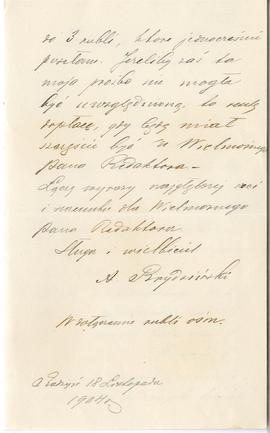 do 3 rubli, które jednocześnie
posyłam. Jeżeliby zaś ta
moja prośba nie mogła
być uwzględnioną, to resztę
dopłacę, gdy będę miał
szczęście być u Wielmożnego
pana Redaktora –
Łączę wyrazy najgłębszej czci
i szacunku dla Wielmożnego
pana Redaktora
Sługa i wielbiciel
A. Brydziński
W załączeniu rubli ośm.
18 Listopada
1904 r